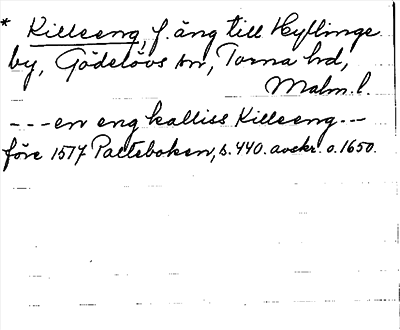 * Killeeng, f. äng till Hyllinge
by, Gödelövs sn, Torna hd,
Malm. l.
---en eng kalliss Killeeng---
före 1517 Palteboken, s. 440. avskr. o. 1650.